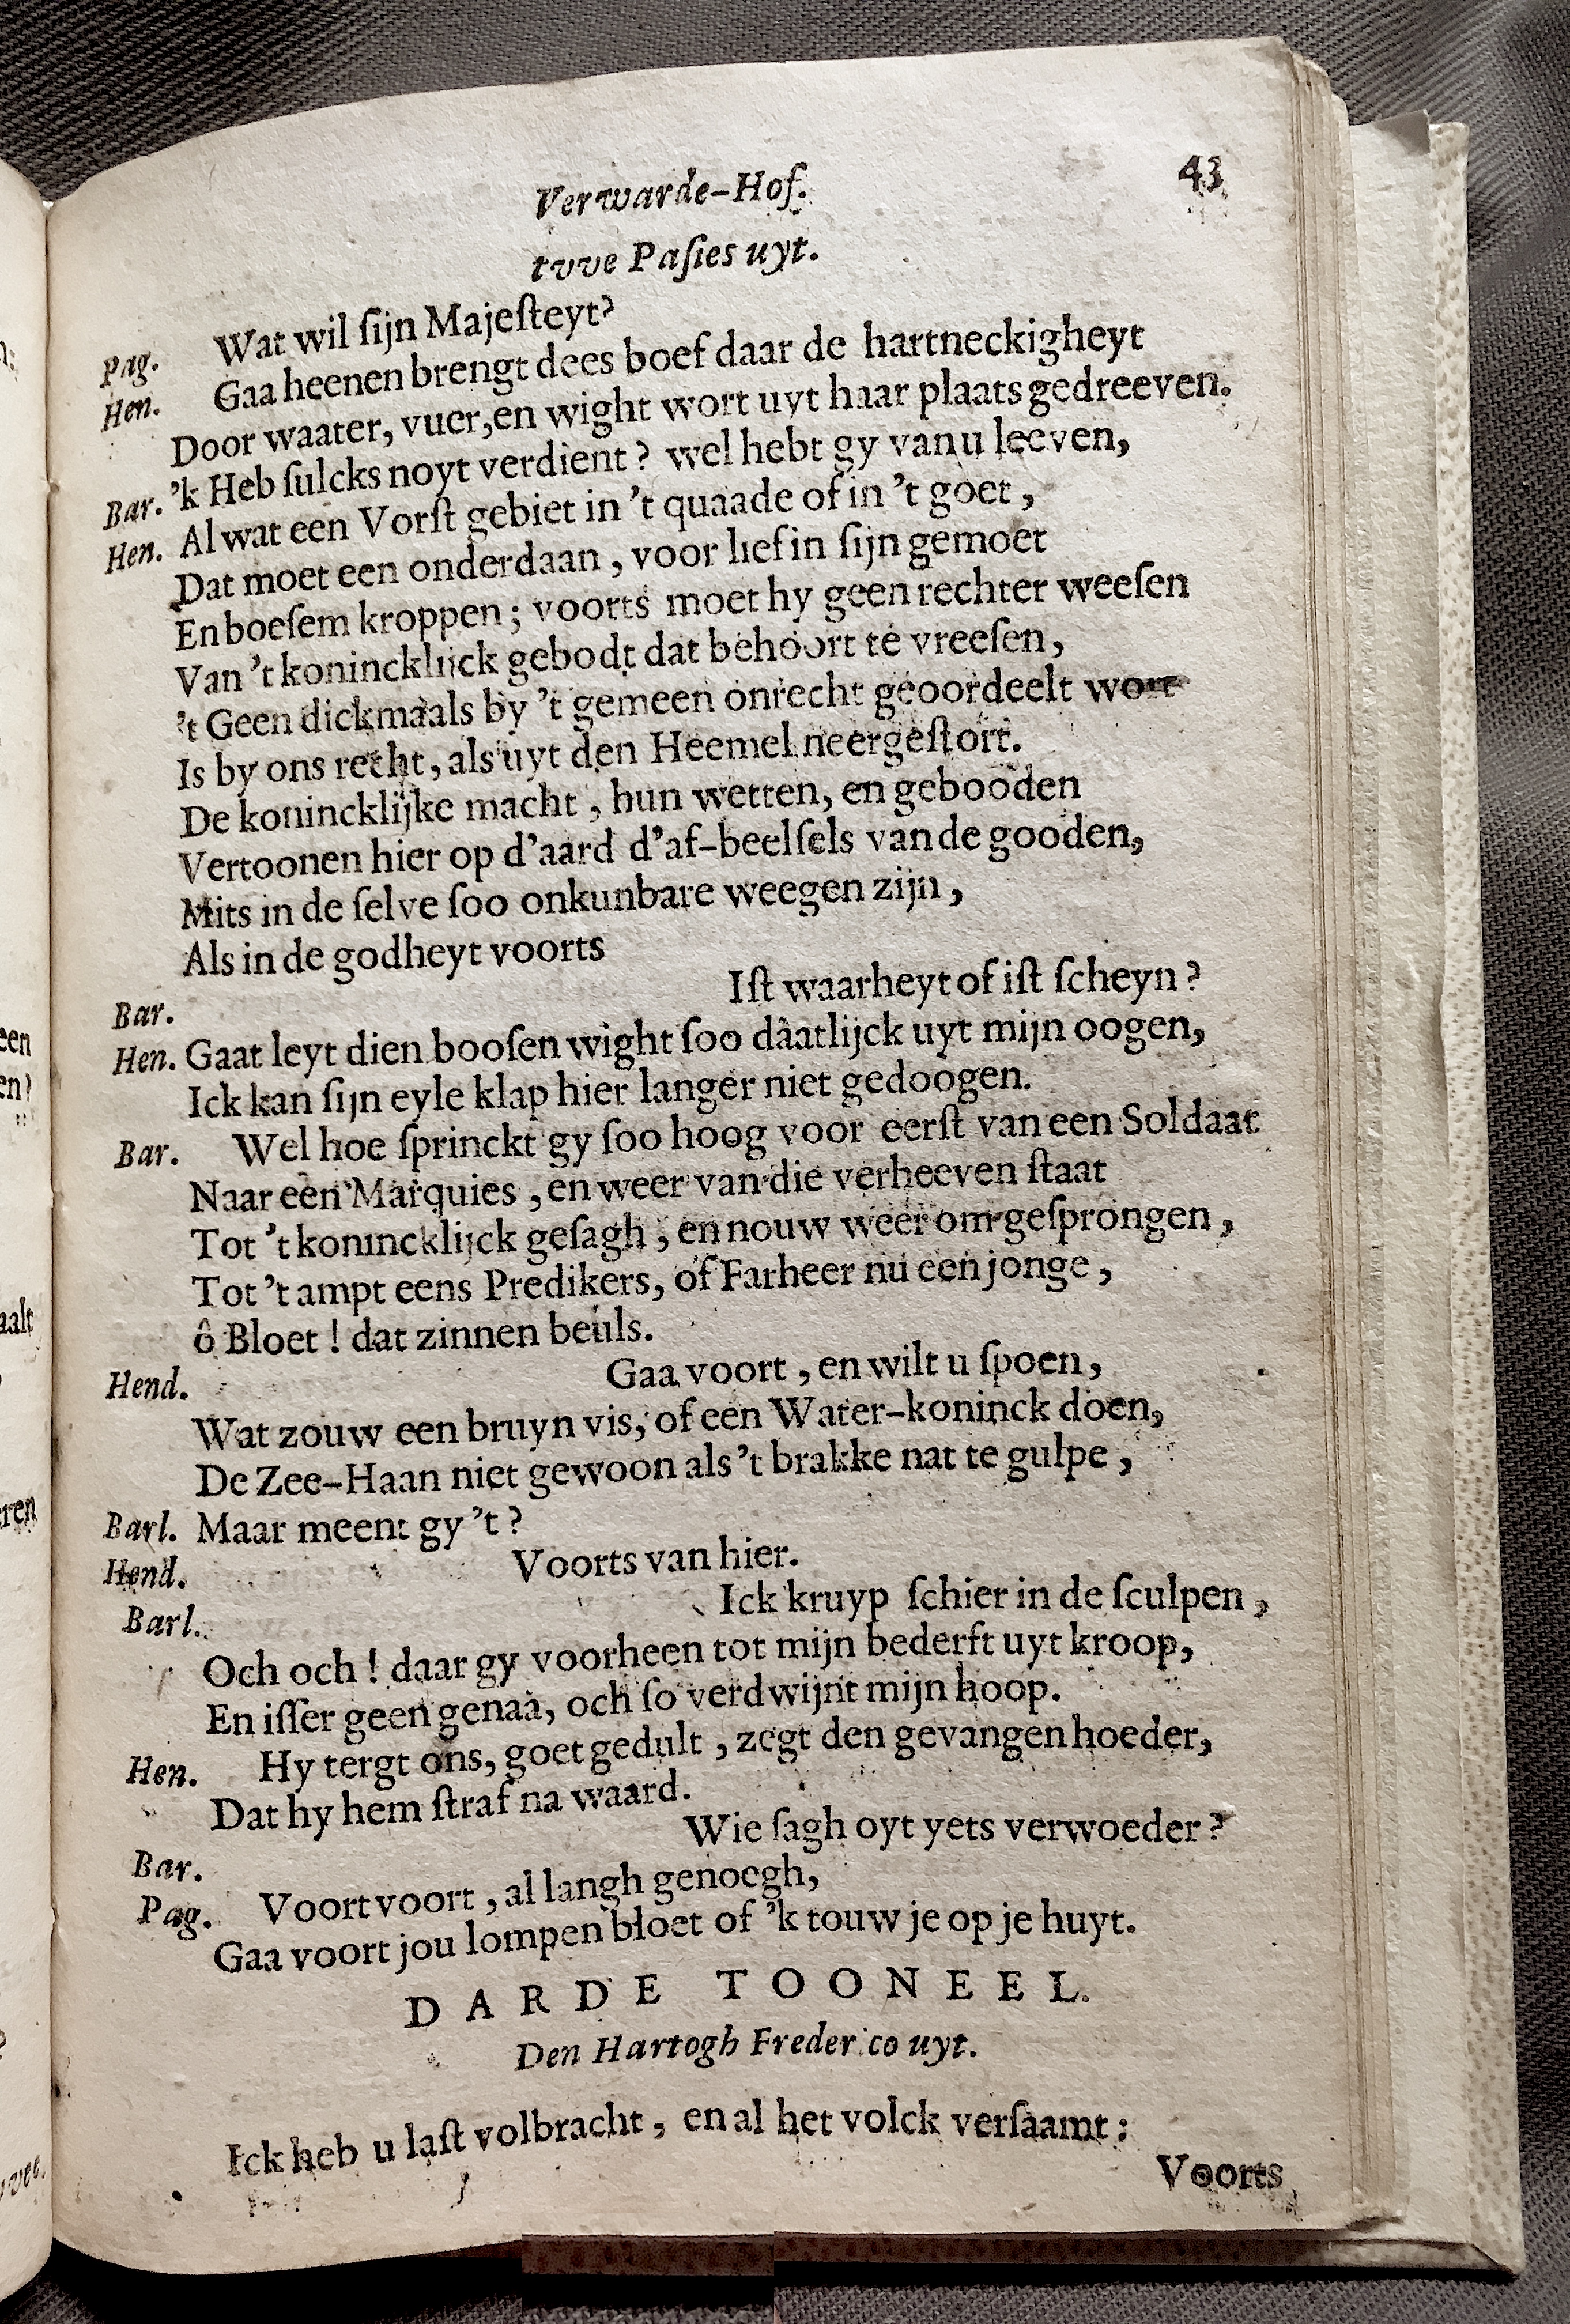 Verwarde-Hof. 43
tvve Pasies uyt.
Pag. Wat wil ſijn Majeſteyt?
Hen. Gaa heenen brengt dees boef daar de hartneckigheyt
Door waater, vuer, en wight wort uyt haar plaats gedreeven.
Bar. 'k Heb ſulcks noyt verdient? wel hebt gy van u leeven,
Hen. Al wat een Vorſt gebiet in 't quaade of in 't goet,
Dat moet een onderdaan, voor lief in ſijn gemoet
En boeſem kroppen; voorts moet hy geen rechter weeſen
Van 't konincklijck gebodt dat behoort te vreeſen,
't Geen dickmaals by 't gemeen onrecht geoordeelt wort
Is by ons recht, als uyt den Heemel neergeſtort.
De konincklijke macht, hun wetten, en gebooden
Vertoonen hier op d'aard d'af-beelſels van de gooden,
Mits in de ſelve ſoo onkunbare weegen zijn,
Als in de godheyt voorts
Bar. Iſt waarheyt of iſt ſcheyn?
Hen. Gaat leyt dien booſen wight ſoo dâatlijck uyt mijn oogen,
Ick kan ſijn eyle klap hier langer niet gedoogen.
Bar. Wel hoe ſprinckt gy ſoo hoog voor eerſt van een Soldaat
Naar een Marquies, en weer van die verheeven ſtaat
Tot 't konincklijck geſagh, en nouw weer om geſprongen,
Tot 't ampt eens Predikers, of Farheer nu een jonge,
ô Bloet! dat zinnen beuls.
Hend. Gaa voort, en wilt u ſpoen,
Wat zouw een bruyn vis, of een Water-koninck doen,
De Zee-Haan niet gewoon als 't brakke nat te gulpe,
Barl. Maar meent gy 't?
Hend. Voorts van hier.
Barl. Ick kruyp ſchier in de ſculpen,
Och och! daar gy voorheen tot mijn bederft uyt kroop,
En iſſer geen genaa, och ſo verdwijnt mijn hoop.
Hen. Hy tergt ons, goet gedult, zegt den gevangen hoeder,
Dat hy hem ſtraf na waard.
Bar. Wie ſagh oyt yets verwoeder?
Pag. Voort voort, al langh genoegh,
Gaa voort jou lompen bloet of 'k touw je op je huyt.
DARDE TOONEEL.
Den Hartogh Frederico uyt.
Ick heb u laſt volbracht, en al het volck verſaamt:
Voorts